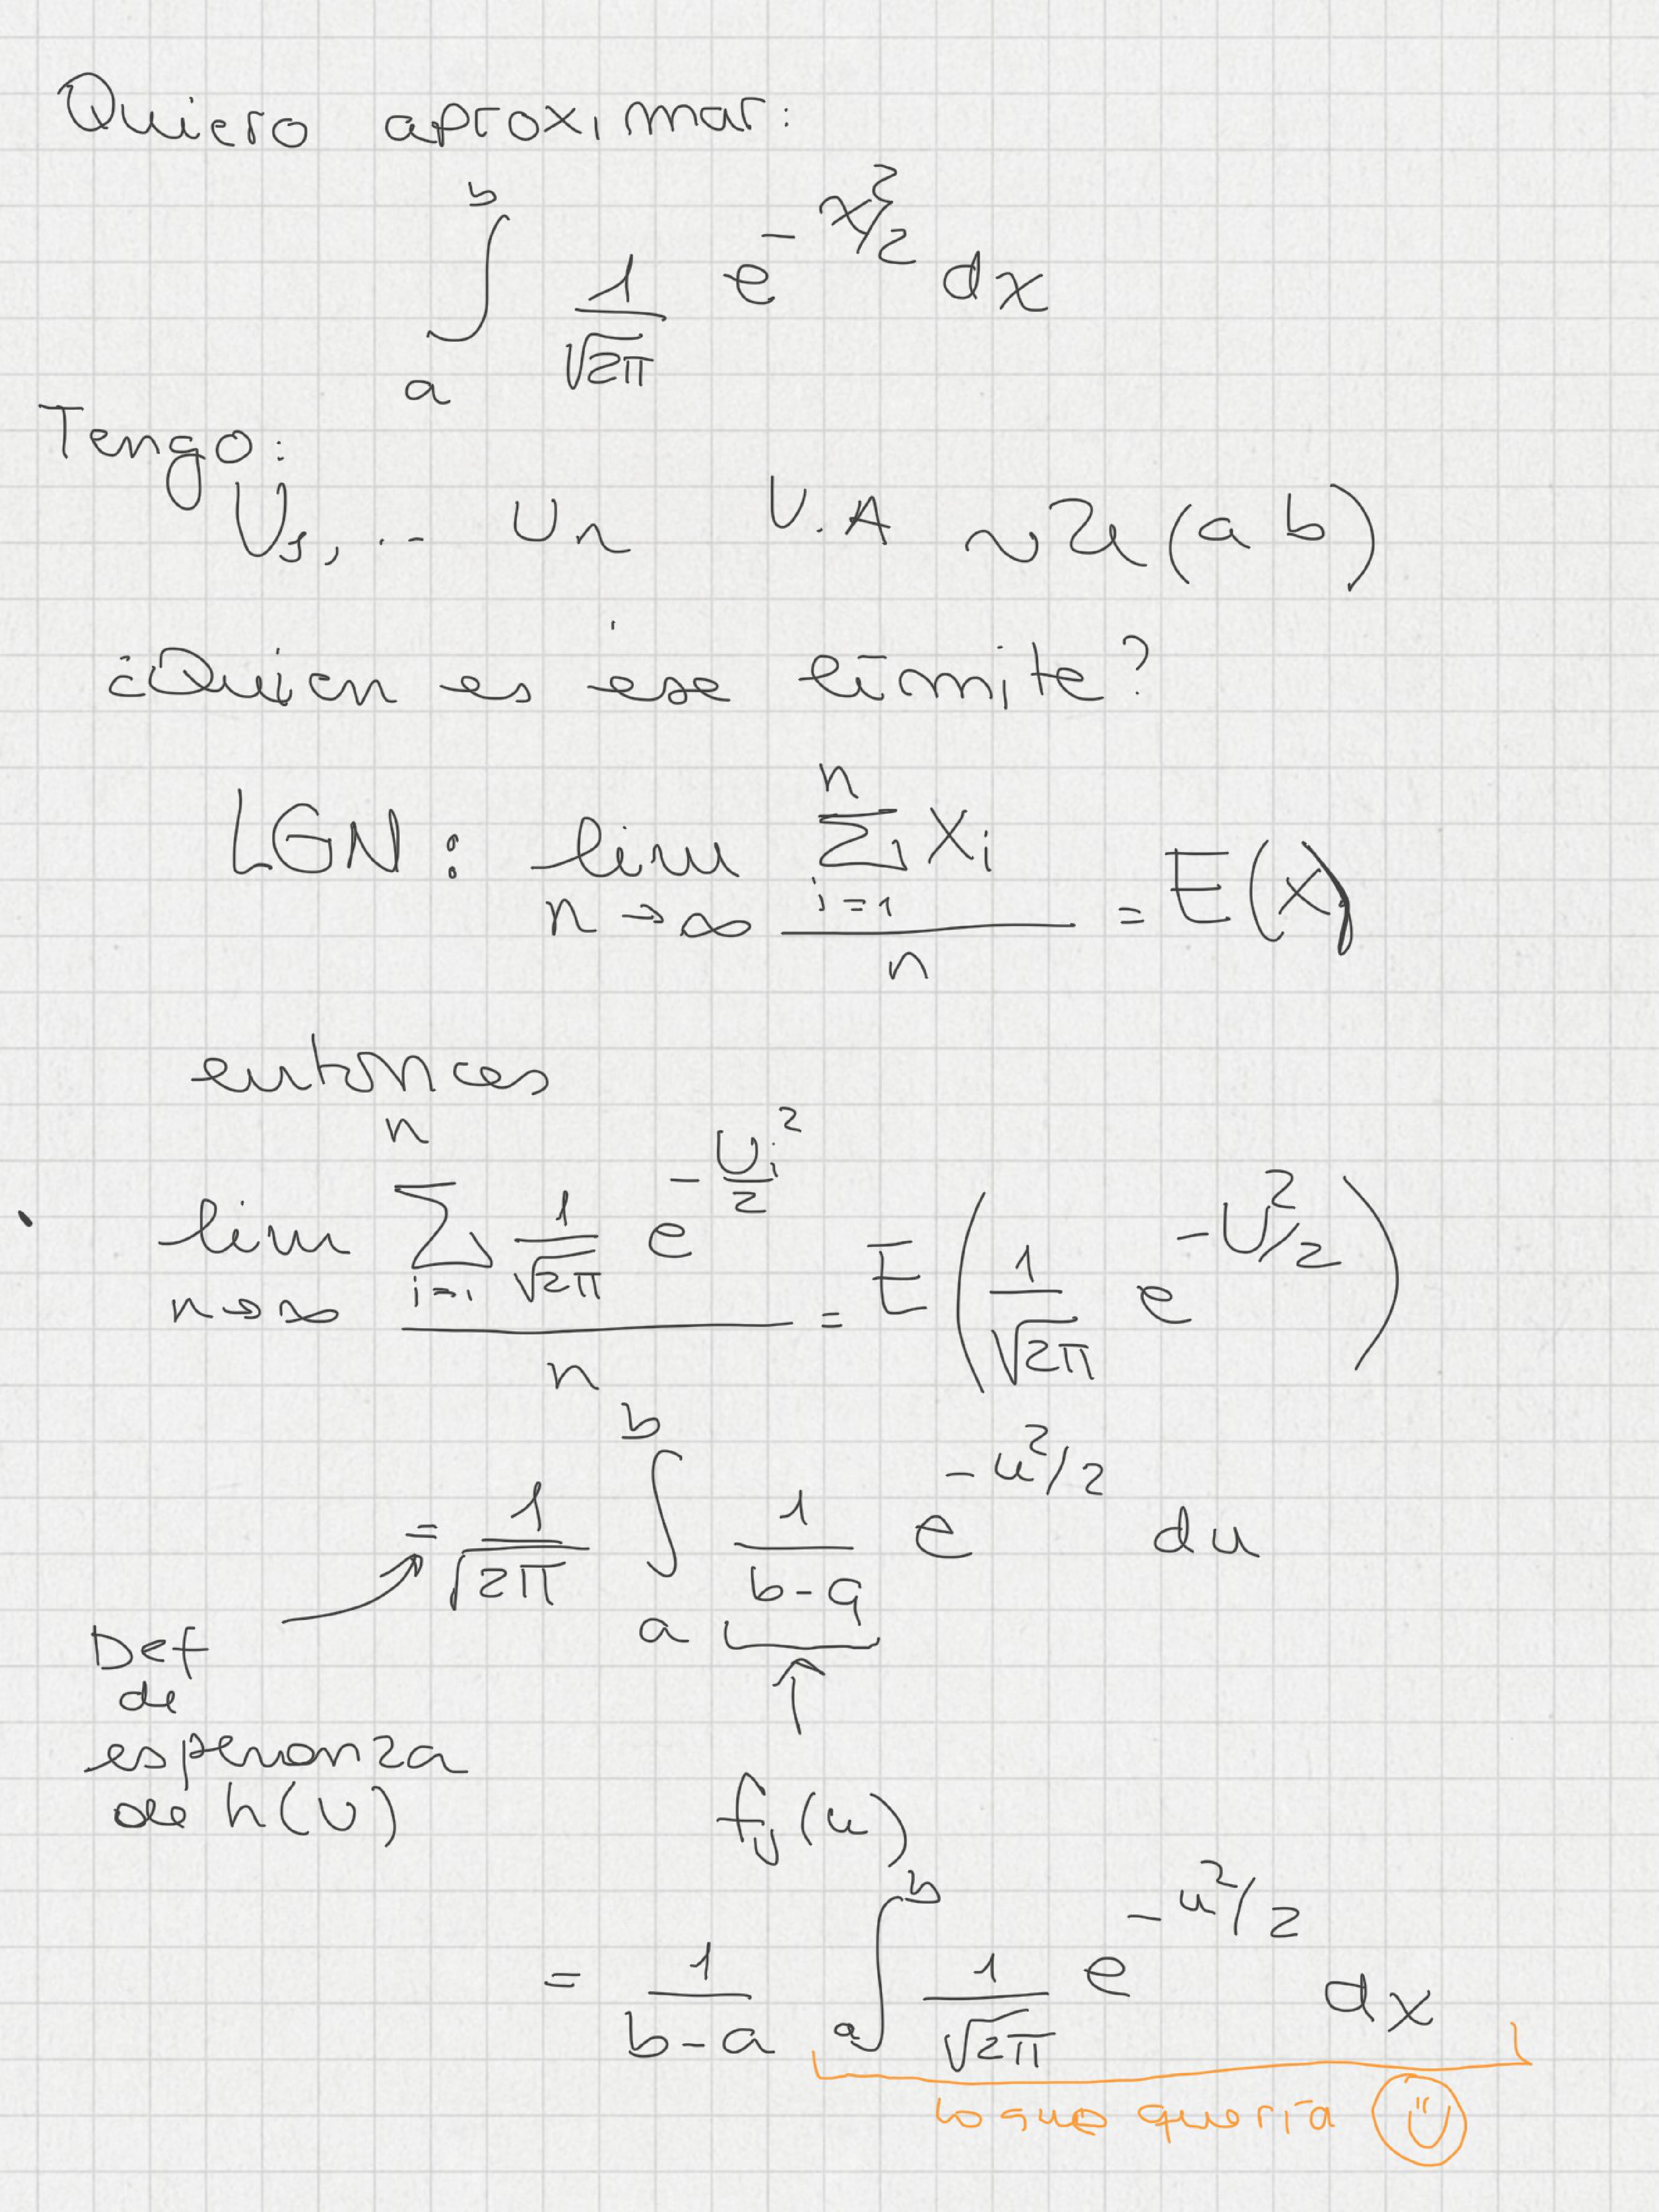 Quiero aproximar:
∫_a^b 1/√2π e^{-x²/2} dx
Tengo:
U₁, ... Un V.A ~ U(a b)
¿Quien es ese límite?
LGN: lim_{n→∞} (∑_{i=1}^n Xi)/n = E(X)
entonces
lim_{n→∞} (∑_{i=1}^n 1/√2π e^{-Ui²/2})/n = E(1/√2π e^{-U²/2})
= 1/√2π ∫_a^b 1/(b-a) e^{-u²/2} du
Def
de
esperanza
de h(U)
↑
f_U(u)
= 1/(b-a) ∫_a^b 1/√2π e^{-u²/2} dx
lo que quería